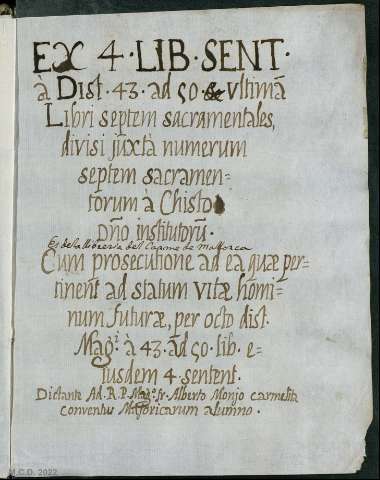 EX 4 · LIB · SENT ·
à Dist · 43 · ad 50 · & ultimã
Libri septem sacramentales,
divisi juxtà numerum
septem sacramen=
torum à Chisto
Dño institutorũ ·
Es de la libreria del Carme de Mallorca
Cum prosecutione ad ea quæ per=
tinent ad statum vitæ homi=
num futuræ, per octo dist.
Magi à 43 · ad 50 · lib. e=
iusdem 4 · sentent.
Dictante Ad. R. P. Mago. fr. Alberto Monjo carmelita
conventus Majoricarum alumno ·
M.C.D. 2022